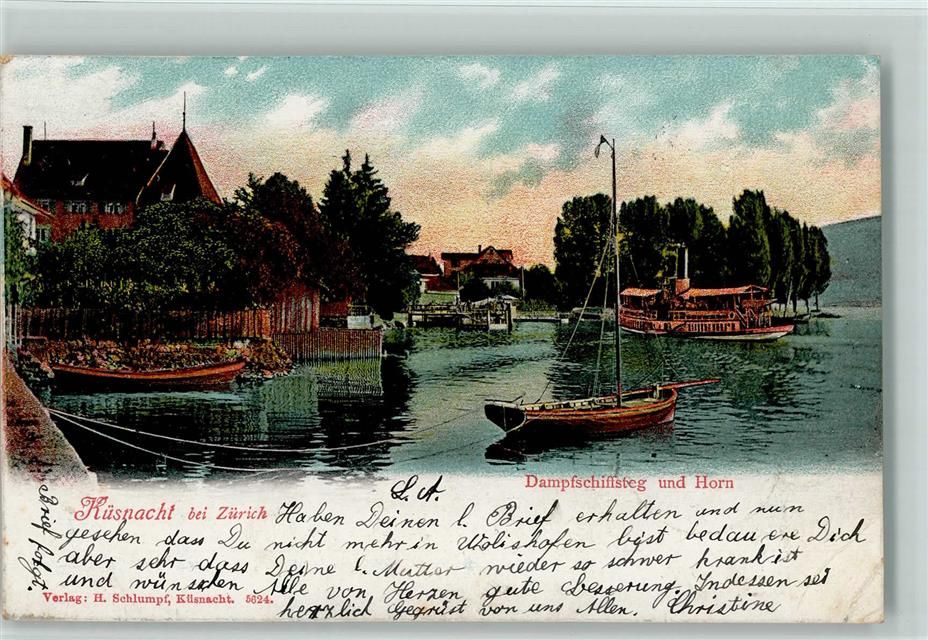 Dampfschiffsteg und Horn
L. A.
Küsnacht bei Zürich Haben Deinen l. Brief erhalten und nun
gesehen dass Du nicht mehr in Wolishofen bist bedaure Dich
aber sehr dass Deine l. Mutter wieder so schwer krank ist
und wünschen Alle von Herzen gute Besserung. Indessen sei
Verlag: H. Schlumpf, Küsnacht. 5624.
herzlich gegrüst von uns Allen. Christine
Brief folgt.